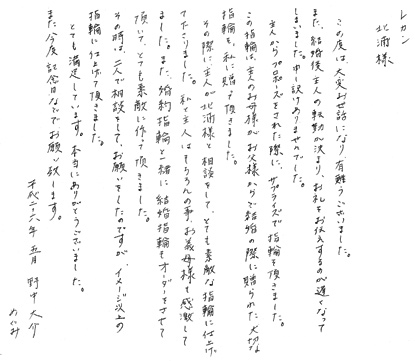 レカン
北浦様
この度は、大変お世話になり、有難うございました。
また、結婚後主人の転勤が決まり、お礼をお伝えするのが遅くなって
しまいました。申し訳ありませんでした。
主人からプロポーズをされた際に、サプライズで指輪を頂きました。
この指輪は、主人のお母様がお父様からご結婚の際に贈られた大切な
指輪を、私に贈って頂きました。
その際に、主人が北浦様と相談をして、とても素敵な指輪に仕上げ
て下さりました。私と主人はもちろんの事、お義母様も感激して
ました。また、婚約指輪と一緒に結婚指輪もオーダーをさせて
頂いて、とても素敵に作って頂きました。
その時は、二人で相談をして、お願いをしたのですが、イメージ以上の
指輪に仕上げて頂きました。
とても満足しています。本当にありがとうございました。
また今度記念日などでお願い致します。
平成二六年 五月 野中 大介
めぐみ